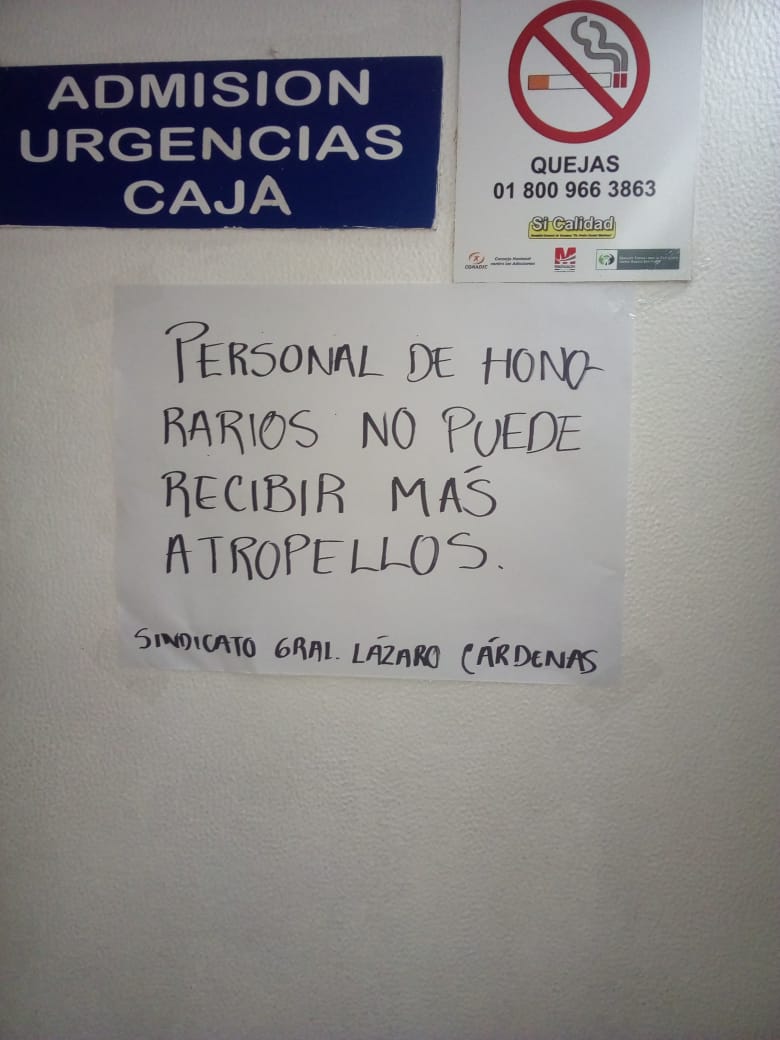 ADMISION
URGENCIAS
CAJA
QUEJAS
01 800 966 3863
Sí Calidad
CONADIC
Consejo Nacional
contra las Adicciones
PERSONAL DE HONO-
RARIOS NO PUEDE
RECIBIR MÁS
ATROPELLOS.
SINDICATO GRAL. LÁZARO CÁRDENAS